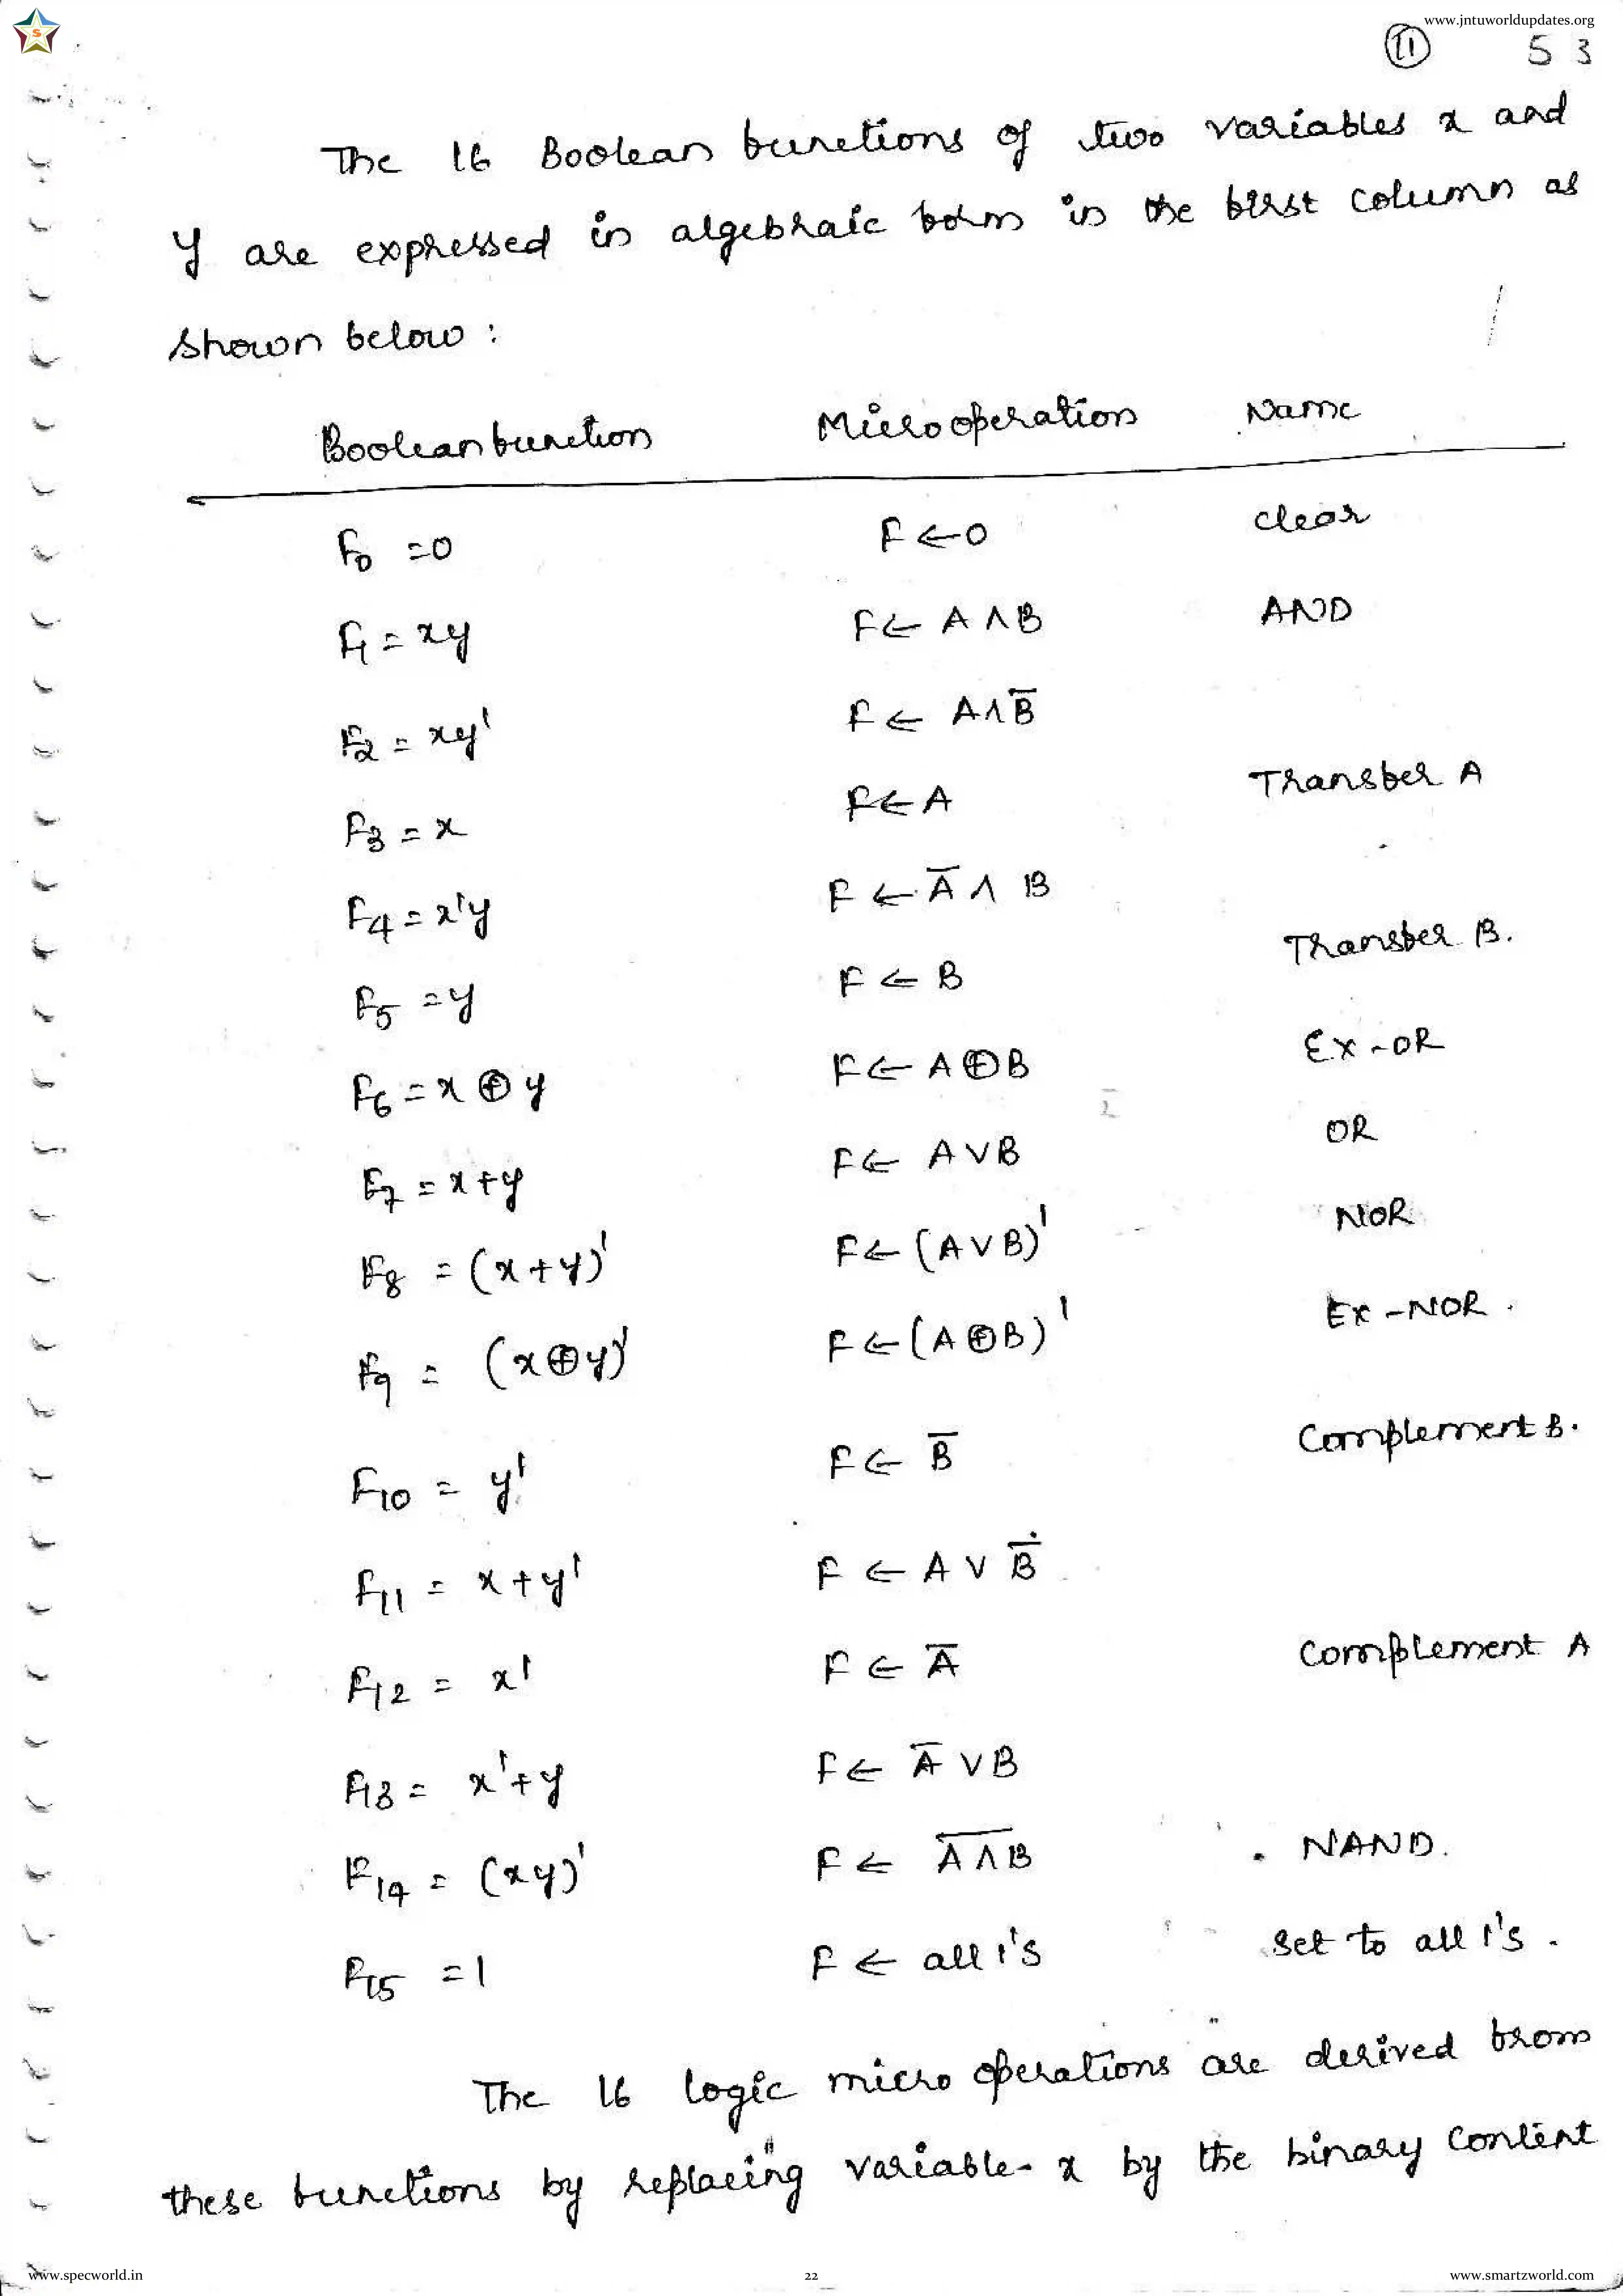 www.jntuworldupdates.org
S
11 53
The 16 Boolean functions of two variables x and
y are expressed in algebraic form in the first column as
shown below :
Boolean function Microoperation Name
F0 = 0 F ← 0 clear
F1 = xy F ← A ∧ B AND
F2 = xy' F ← A ∧ B̅
F3 = x F ← A Transfer A
F4 = x'y F ← A̅ ∧ B
F5 = y F ← B Transfer B.
F6 = x ⊕ y F ← A ⊕ B Ex-OR
F7 = x + y F ← A ∨ B OR
F8 = (x + y)' F ← (A ∨ B)' NOR
F9 = (x ⊕ y)' F ← (A ⊕ B)' Ex-NOR.
F10 = y' F ← B̅ Complement B.
F11 = x + y' F ← A ∨ B̅
F12 = x' F ← A̅ Complement A
F13 = x' + y F ← A̅ ∨ B
F14 = (xy)' F ← A̅ ̅∧̅ ̅B̅ NAND.
F15 = 1 F ← all 1's Set to all 1's.
The 16 logic micro operations are derived from
these functions by replacing variable x by the binary content
www.specworld.in 22 www.smartzworld.com